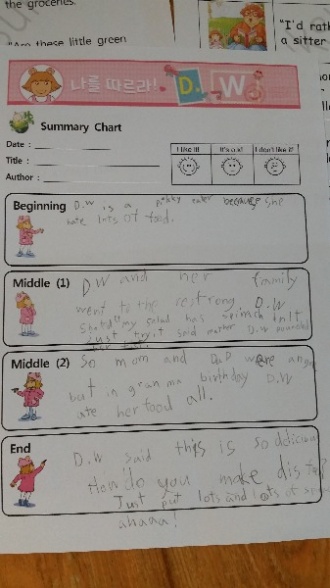 the groceries.
"Are these little green
"I'd rath
a sitter
나를 따르라! D.W
Summary Chart
Date :
Title :
Author :
I like it!
It's o.k!
I don't like it!
Beginning
D.W is a picky eater because she
hate lots of food.
Middle (1)
DW and her family
went to the restrong D.W
Shouted "my salad has spinach in it
Just try it said mother D.W pounded
Middle (2)
So mom and DaD were angry
but in gran ma birthday D.W
ate her food all.
End
D.W said this is so delicious
How do you make dis food?
Just put lots and lots of
ahaaa!